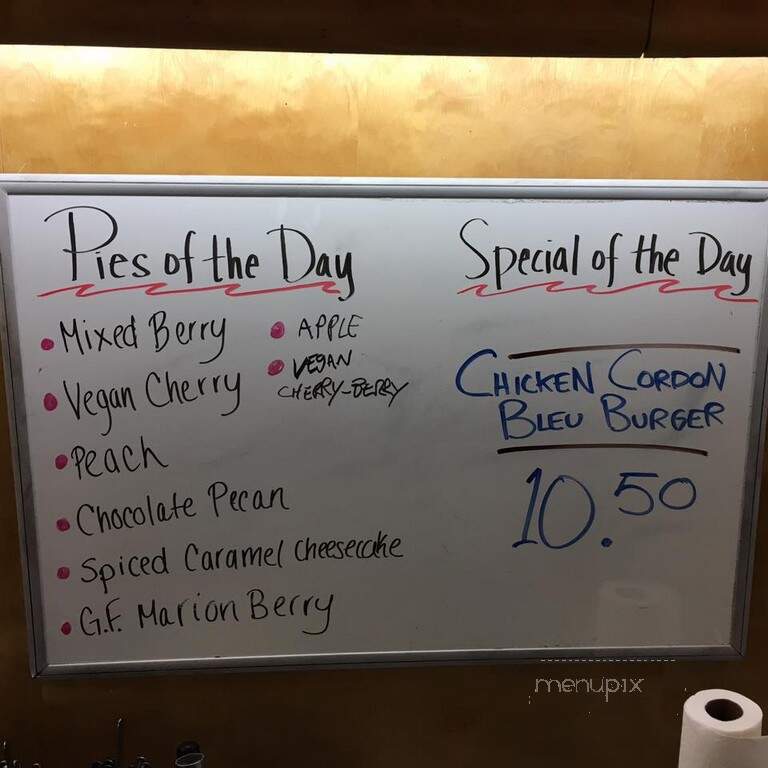 Pies of the Day
• Mixed Berry
• Vegan Cherry
• Peach
• Chocolate Pecan
• Spiced Caramel Cheesecake
• G.F. Marion Berry
• APPLE
• VEGAN
CHERRY-BERRY
Special of the Day
CHICKEN CORDON
BLEU BURGER
10.50
menupix